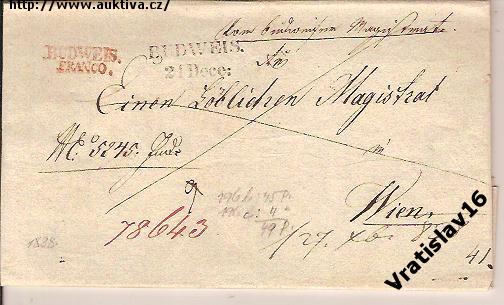 http://www.auktiva.cz/
Vom Budweiser Magistrat.
BUDWEIS.
FRANCO.
BUDWEIS.
21 Dece:
An
Einen Löblichen Magistrat
No: 5245.
in
Wien.
78643
45
4
49
1828
27.
41.
Vratislav16